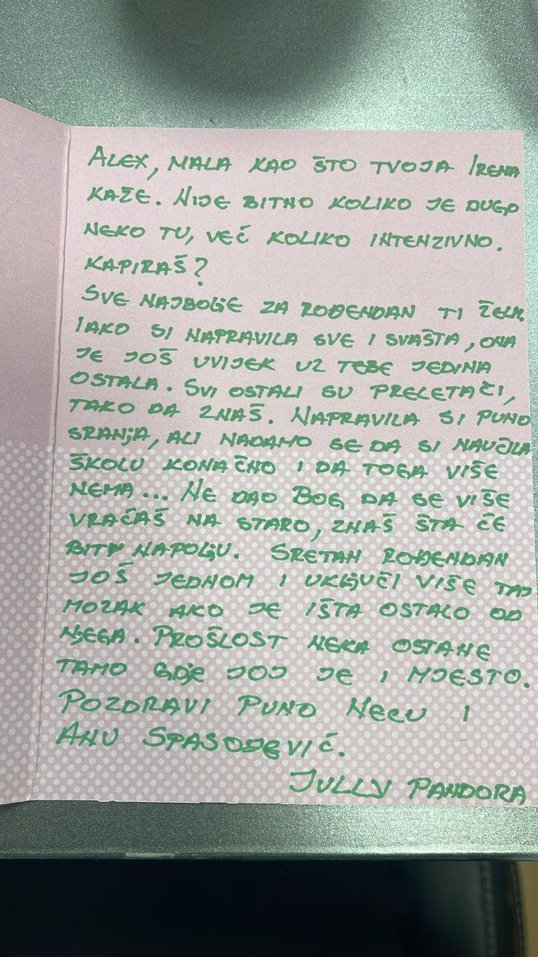 ALEX, MALA KAO ŠTO TVOJA IRENA
KAŽE. NIJE BITNO KOLIKO JE DUGO
NEKO TU, VEČ KOLIKO INTENZIVNO.
KAPIRAŠ?
SVE NAJBOLJE ZA ROĐENDAN TI ŽELIM.
IAKO SI NAPRAVILA SVE I SVAŠTA, ONA
JE JOŠ UVIJEK UZ TEBE JEDINA
OSTALA. SVI OSTALI SU PRELETAČI,
TAKO DA ZNAŠ. NAPRAVILA SI PUNO
SRANJA, ALI NADAMO SE DA SI NAUČILA
ŠKOLU KONAČNO I DA TOGA VIŠE
NEMA... NE DAO BOG, DA SE VIŠE
VRAČAŠ NA STARO, ZNAŠ ŠTA ČE
BITI NAPOLJU. SRETAN ROĐENDAN
JOŠ JEDNOM I UKLJUČI VIŠE TAJ
MOZAK AKO JE IŠTA OSTALO OD
NJEGA. PROŠLOST NEKA OSTANE
TAMO GDJE JOJ JE I MJESTO.
POZDRAVI PUNO NECU I
ANU SPASOJEVIČ.
JULLY PANDORA